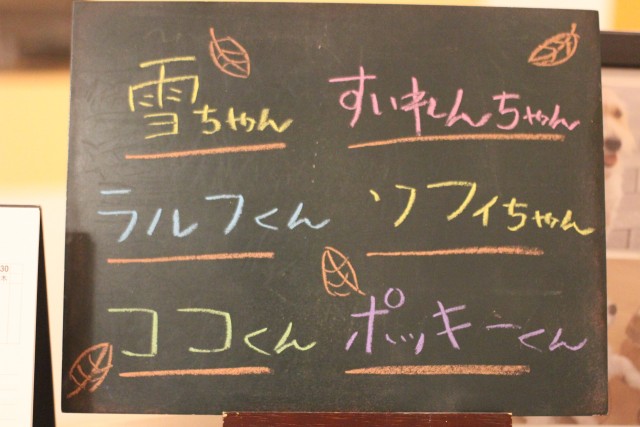 雪ちゃん すいれんちゃん
ラルフくん ソフィちゃん
ココくん ポッキーくん
30
木